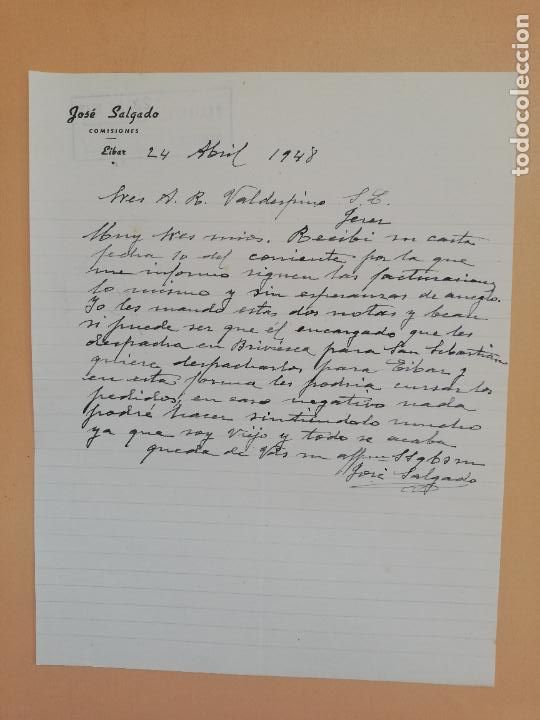 José Salgado
COMISIONES
Eibar 24 Abril 1948
Sres A. R. Valdespino S. L.
Jerez
Muy Sres mios. Recibi su carta
fecha 10 del corriente por la que
me informo siguen las facturaciones
lo mismo y sin esperanzas de arreglo.
Yo les mando estas dos notas y bean
si puede ser que él encargado que les
despacha en Briviesca para San Sebastián
quiere despacharlos para Eibar y
en esta forma les podria cursar los
pedidos, en caso negativo nada
podré hacer sintiendolo mucho
ya que soy Viejo y todo se acaba
queda de Vds su affmo S S q b s m
José Salgado
todocoleccion.net